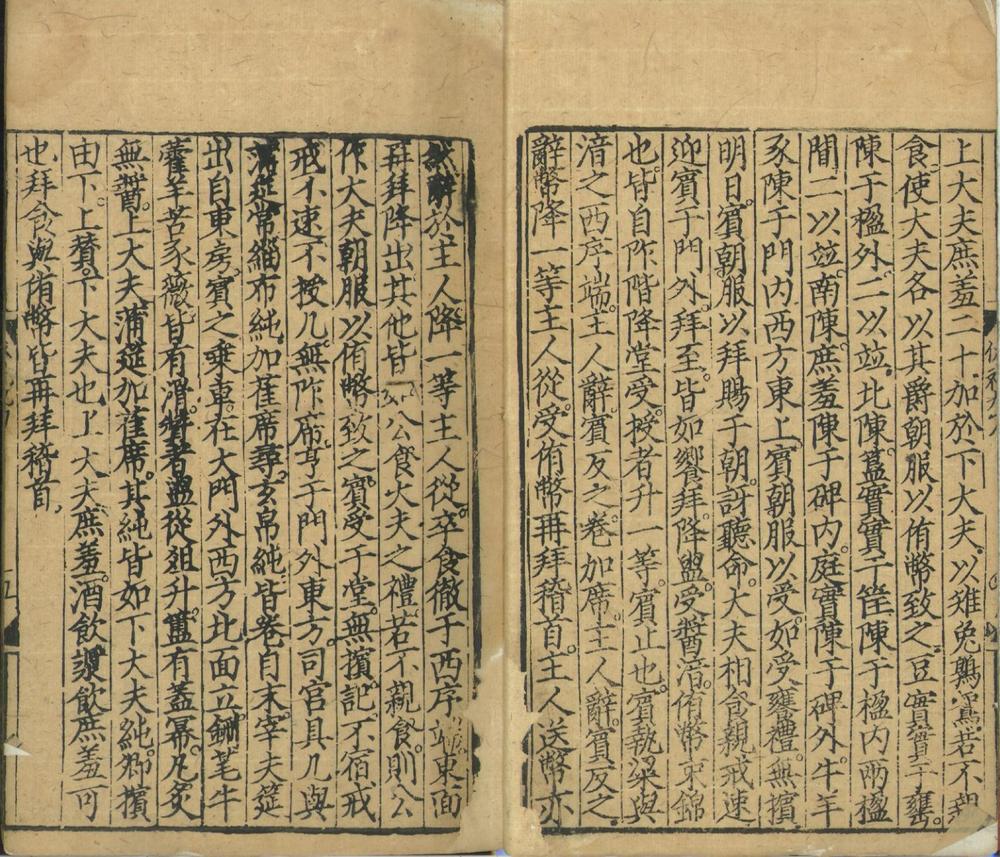 上大夫庶羞二十加於下大夫以雉兔鶉鴽若不親
食使大夫各以其爵朝服以侑幣致之豆實實于罋
陳于楹外二以竝北陳簋實實于筐陳于楹内兩楹
間二以竝南陳庶羞陳于碑内庭實陳于碑外牛羊
豕陳于門内西方東上賓朝服以受如受饔禮無擯
明日賓朝服以拜賜于朝訝聽命大夫相食親戒速
迎賓于門外拜至皆如饗拜降盥受醬湇侑幣束錦
也皆自阼階降堂受授者升一等賓止也賓執粱與
湆之西序端主人辭賓反之卷加席主人辭賓反之
辭幣降一等主人從受侑幣再拜稽首主人送幣亦
然辭於主人降一等主人從卒食徹于西序端東面
再拜降出其他皆如公食大夫之禮若不親食則公
作大夫朝服以侑幣致之賓受于堂無擯記不宿戒
戒不速不授几無阼席亨于門外東方司宮具几與
蒲筵常緇布純加萑席尋玄帛純皆卷自末宰夫筵
出自東房賓之乘車在大門外西方北面立鉶芼牛
藿羊苦豕薇皆有滑贊者盥從俎升簠有蓋冪凡炙
無醬上大夫蒲筵加萑席其純皆如下大夫純卿擯
由下上贊下大夫也上大夫庶羞酒飲漿飲庶羞可
也拜食與侑幣皆再拜稽首